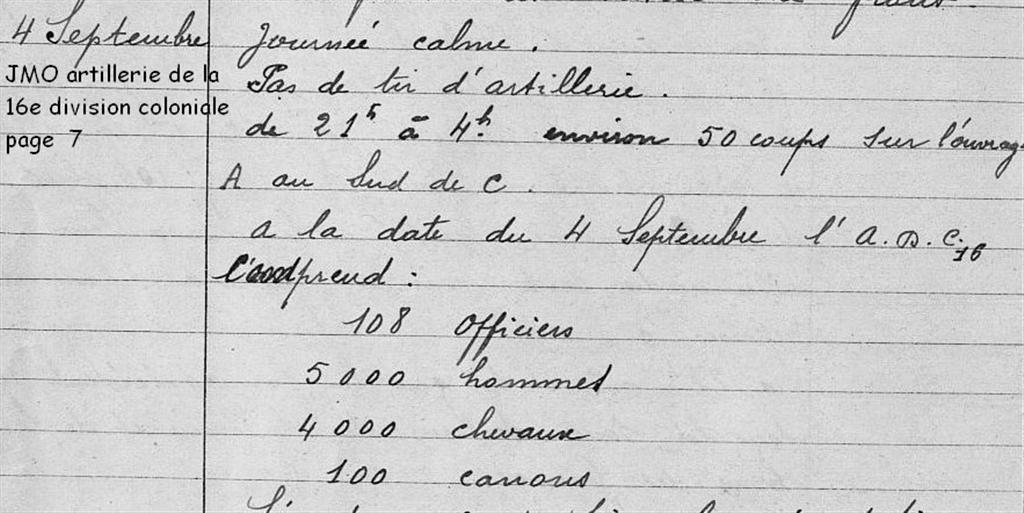 4 Septembre Journée calme.
JMO artillerie de la
16e division coloniale
page 7
Pas de tir d'artillerie.
de 21h à 4h. environ 50 coups sur l'ouvrage
A au Sud de C.
A la date du 4 Septembre l'A.D.C. 16
comprend :
108 Officiers
5000 hommes
4000 chevaux
100 canons